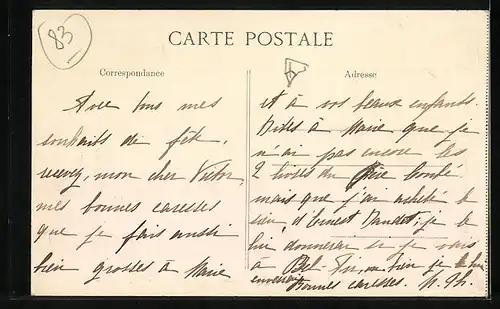 83
CARTE POSTALE
Correspondance
Avec tous mes
souhaits de fête,
recevez, mon cher Victor,
mes bonnes caresses
que je fais aussi
bien grosses à Marie
Adresse
et à vos beaux enfants.
Dites à Marie que je
n'ai pas encore les
2 livres du
mais que j'ai acheté le
sien, d'Ernest je le
lui donnerai si je vais
à Bel-Air, ou bien je le lui
enverrai
Bonnes caresses.